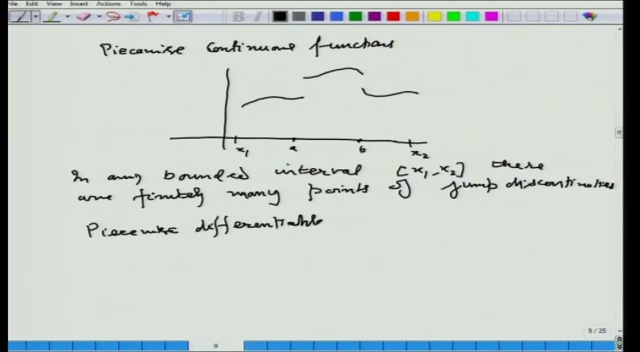 File Edit View Insert Actions Tools Help
B
Piecewise Continuous functions
x1 a b x2
In any bounded interval [x1, x2] there
are finitely many points of jump discontinuities
Piecewise differentiable
9 / 25
9